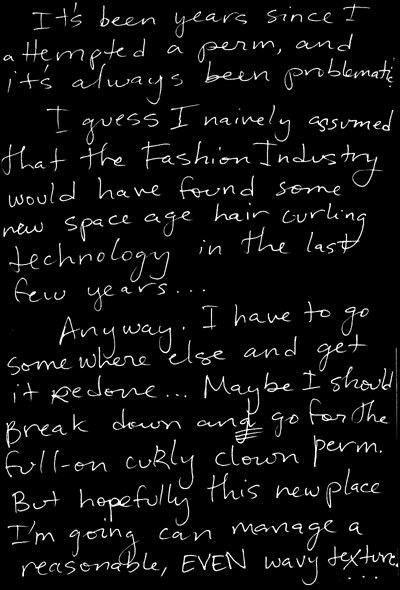 It's been years since I
attempted a perm, and
it's always been problematic.
I guess I naively assumed
that the Fashion Industry
would have found some
new space age hair curling
technology in the last
few years...
Anyway. I have to go
somewhere else and get
it redone... Maybe I should
Break down and go for the
full-on curly clown perm.
But hopefully this new place
I'm going can manage a
reasonable, EVEN wavy texture...